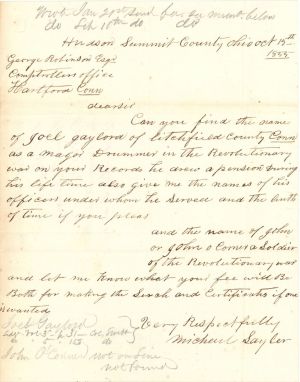 Hudson Summit County Ohio Oct 15th
George Robinson Esqr
Comptrollers office
Hartford Conn
dearsir
Can you find the name
of Joel gaylord of Litchfield County Conn
as a major Drummer in the Revolutionary
war on your Records he drew a pension during
his life time also give me the names of his
officers under whom he served and the length
of time if you pleas
and the name of John
or John o Conner a Soldier
of the Revolutionary war
and let me know what your fee will Be
Both for making the Serch and Certificates if one
is wanted
Very Respectfully
Joel Gaylord
John O'Conner not on fine
not found